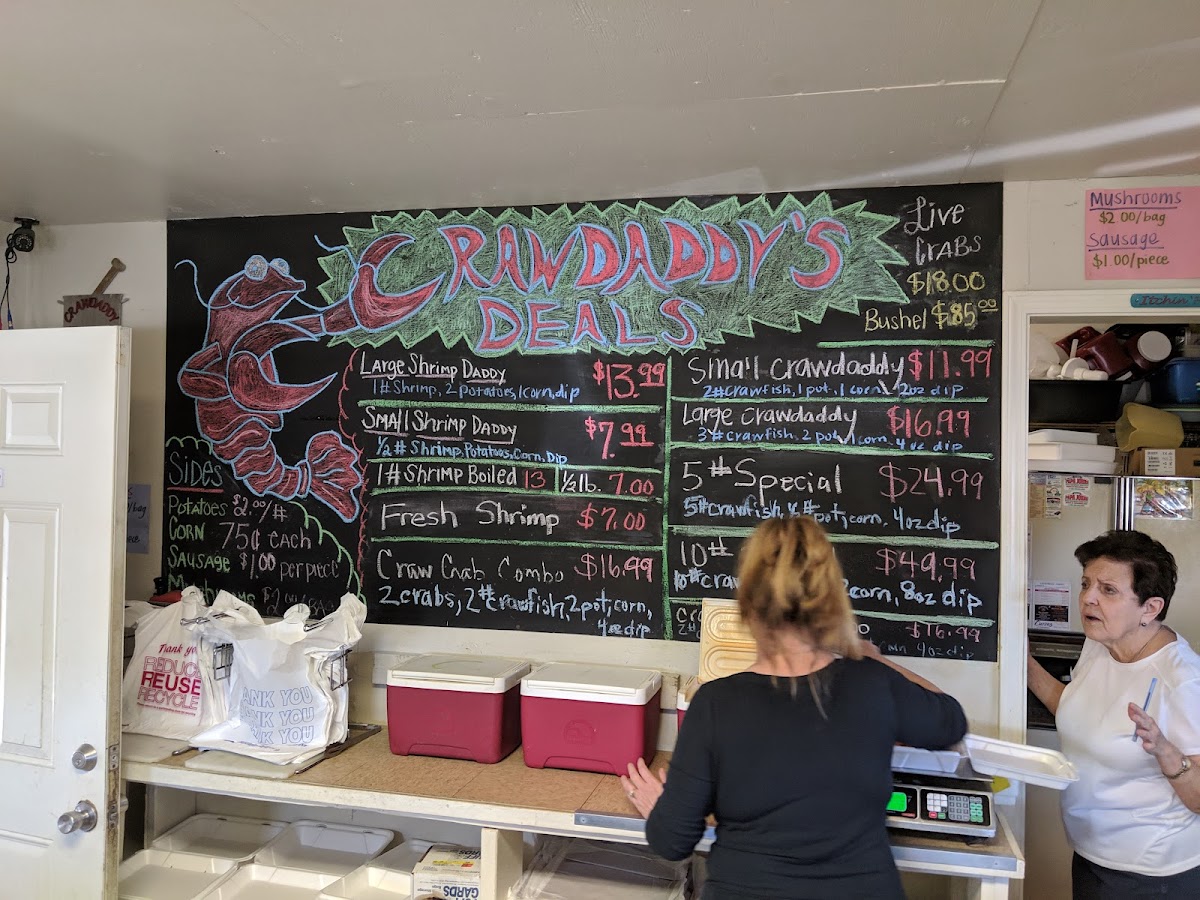 CRAWDADDY'S
DEALS
Live
CrABS
$18.00
Bushel $85.00
Mushrooms
$2.00/bag
Sausage
$1.00/piece
CRAWDADDY
Large Shrimp DADDY $13.99
1# Shrimp, 2 potatoes, 1 corn, dip
Small Shrimp DADDY $7.99
1/2 # Shrimp, Potatoes, Corn, Dip
1# Shrimp Boiled 13 1/2 lb. 7.00
Fresh Shrimp $7.00
Craw Crab Combo $16.99
2 crabs, 2# crawfish, 2 pot, corn,
4oz dip
Small crawdaddy $11.99
2# crawfish, 1 pot, 1 corn, 2oz dip
Large crawdaddy $16.99
3# crawfish, 2 pot, 1 corn, 4oz dip
5# Special $24.99
5# crawfish, pot, corn, 4oz dip
10# $49.99
10# craw corn, 8oz dip
$16.99
4oz dip
Sides
Potatoes $2.00/#
Corn 75¢ each
Sausage $1.00 per piece
Thank you
REDUCE
REUSE
RECYCLE
THANK YOU
THANK YOU
THANK YOU
GARDS